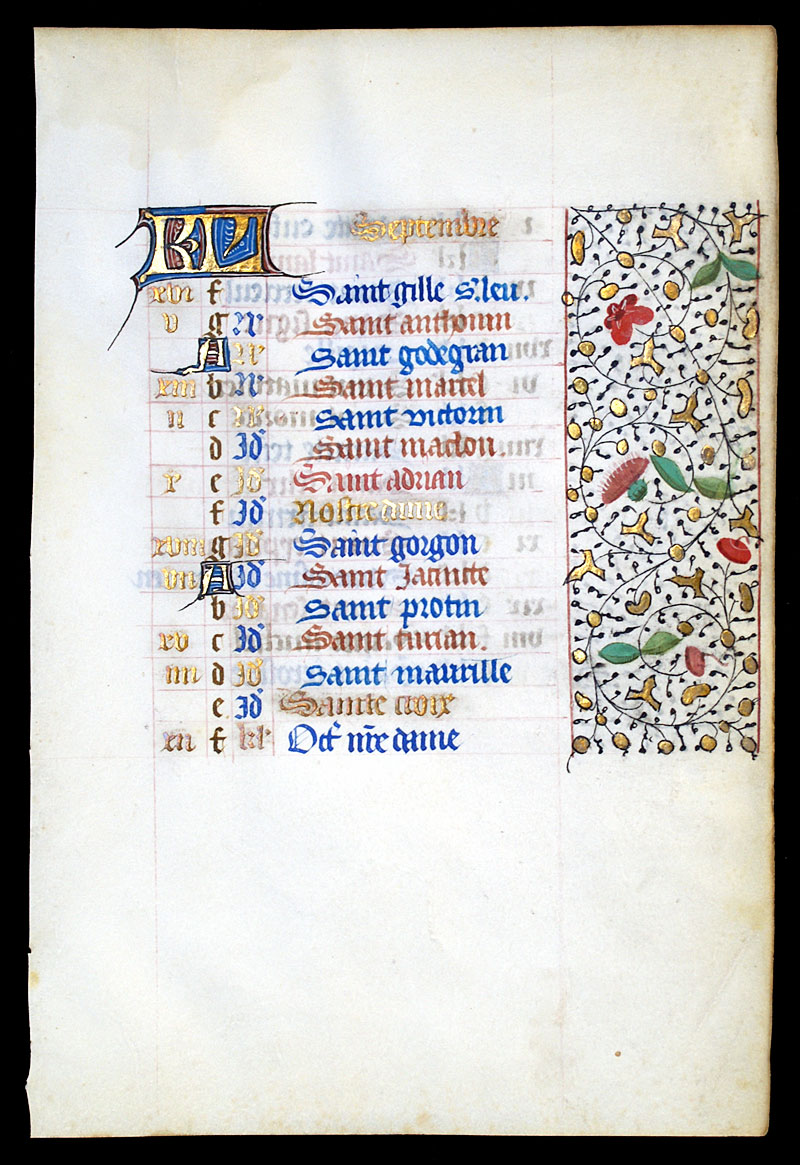 KL Septembre
xvi f Saint gille s. leu.
v g N Saint anthonin
A N Saint godegran
xiii b N Saint marcel
ii c N Saint victorin
d Id Saint maclou.
x e Id Saint adrian
f Id Nostre dame
xviii g Id Saint gorgon
vii A Id Saint Jacintte
b Id Saint protin
xv c Id Saint turian.
iiii d Id Saint maurille
e Id Sainte croix
xii f kl Oct nre dame